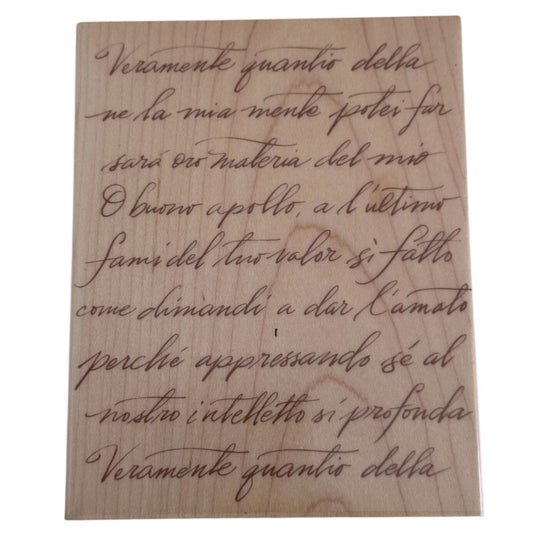 Veramente quantio della
ne la mia mente potei far
sará oro materia del mio
O buono apollo, a l'ultimo
fami del tuo valor sì fatto
come dimandi a dar l'amato
perché appressando sé al
nostro intelletto si profonda
Veramente quantio della